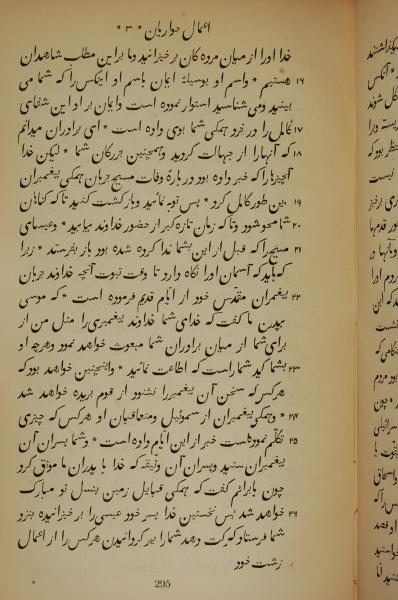 اعمال حواریان * ۳ *
خدا اورا از میان مردە کان بر خیزانید وما براین مطلب شاهدان
۱۶ هستیم * واسم او بوسیلهٔ ایمان باسم او اینکس را که شما می
بینید ومی شناسید استوار نموده است وایمان بر او این شفای
۱۷ کامل را در نزد همکی شما بوی داده است * ای برادران میدانم
۱۸ که آنها را از جهالت کردید وهمچنین بزرکان شما * لیکن خدا
آنچیزها را که خبر داده بود در بارهٔ وفات مسیح بزبان همکی پیغمبران
۱۹ بدین طور کامل کرد * پس توبه نمائید وبازکشت کنید تا که کناهان
۲۰ شما محو شود وتا که زمان تازه کی از حضور خداوند بیاید * وعیسای
۲۱ مسیح را که قبل از این بشما ندا کرده شده بود باز بفرستد * زیرا
که باید که آسمان اورا نکاه دارد تا وقت ثبوت آنچه خداوند بزبان
۲۲ پیغمبران مقدّس خود از ایّام قدیم فرموده است * که موسی
بپدران ما کفت که خدای شما خداوند پیغمبری را مثل من از
برای شما از میان برادران شما مبعوث خواهد نمود وهرچه او
۲۳ بشما کوید شما راست که اطاعت نمائید * واینچنین خواهد بود که
هرکس که سخن آن پیغمبر را نشنود از قوم بریده خواهد شد
۲۴ * وهمکی پیغمبران از سموئیل ومتعاقبان او هرکس که چیزی
۲۵ تکلّم نموده است خبر از این ایّام داده است * وشما پسران آن
پیغمبران هستید وپسران آن وثیقه که خدا با پدران ما موثق کرد
چون بابراهیم کفت که همکی قبایل زمین بنسل تو مبارک
۲۶ خواهد شد * پس نخستین خدا پسر خود عیسی را بر خیزانیده بنزد
شما فرستاد که برکت دهد شما را ببر کردانیدن هرکس را از اعمال
زشت خود
295